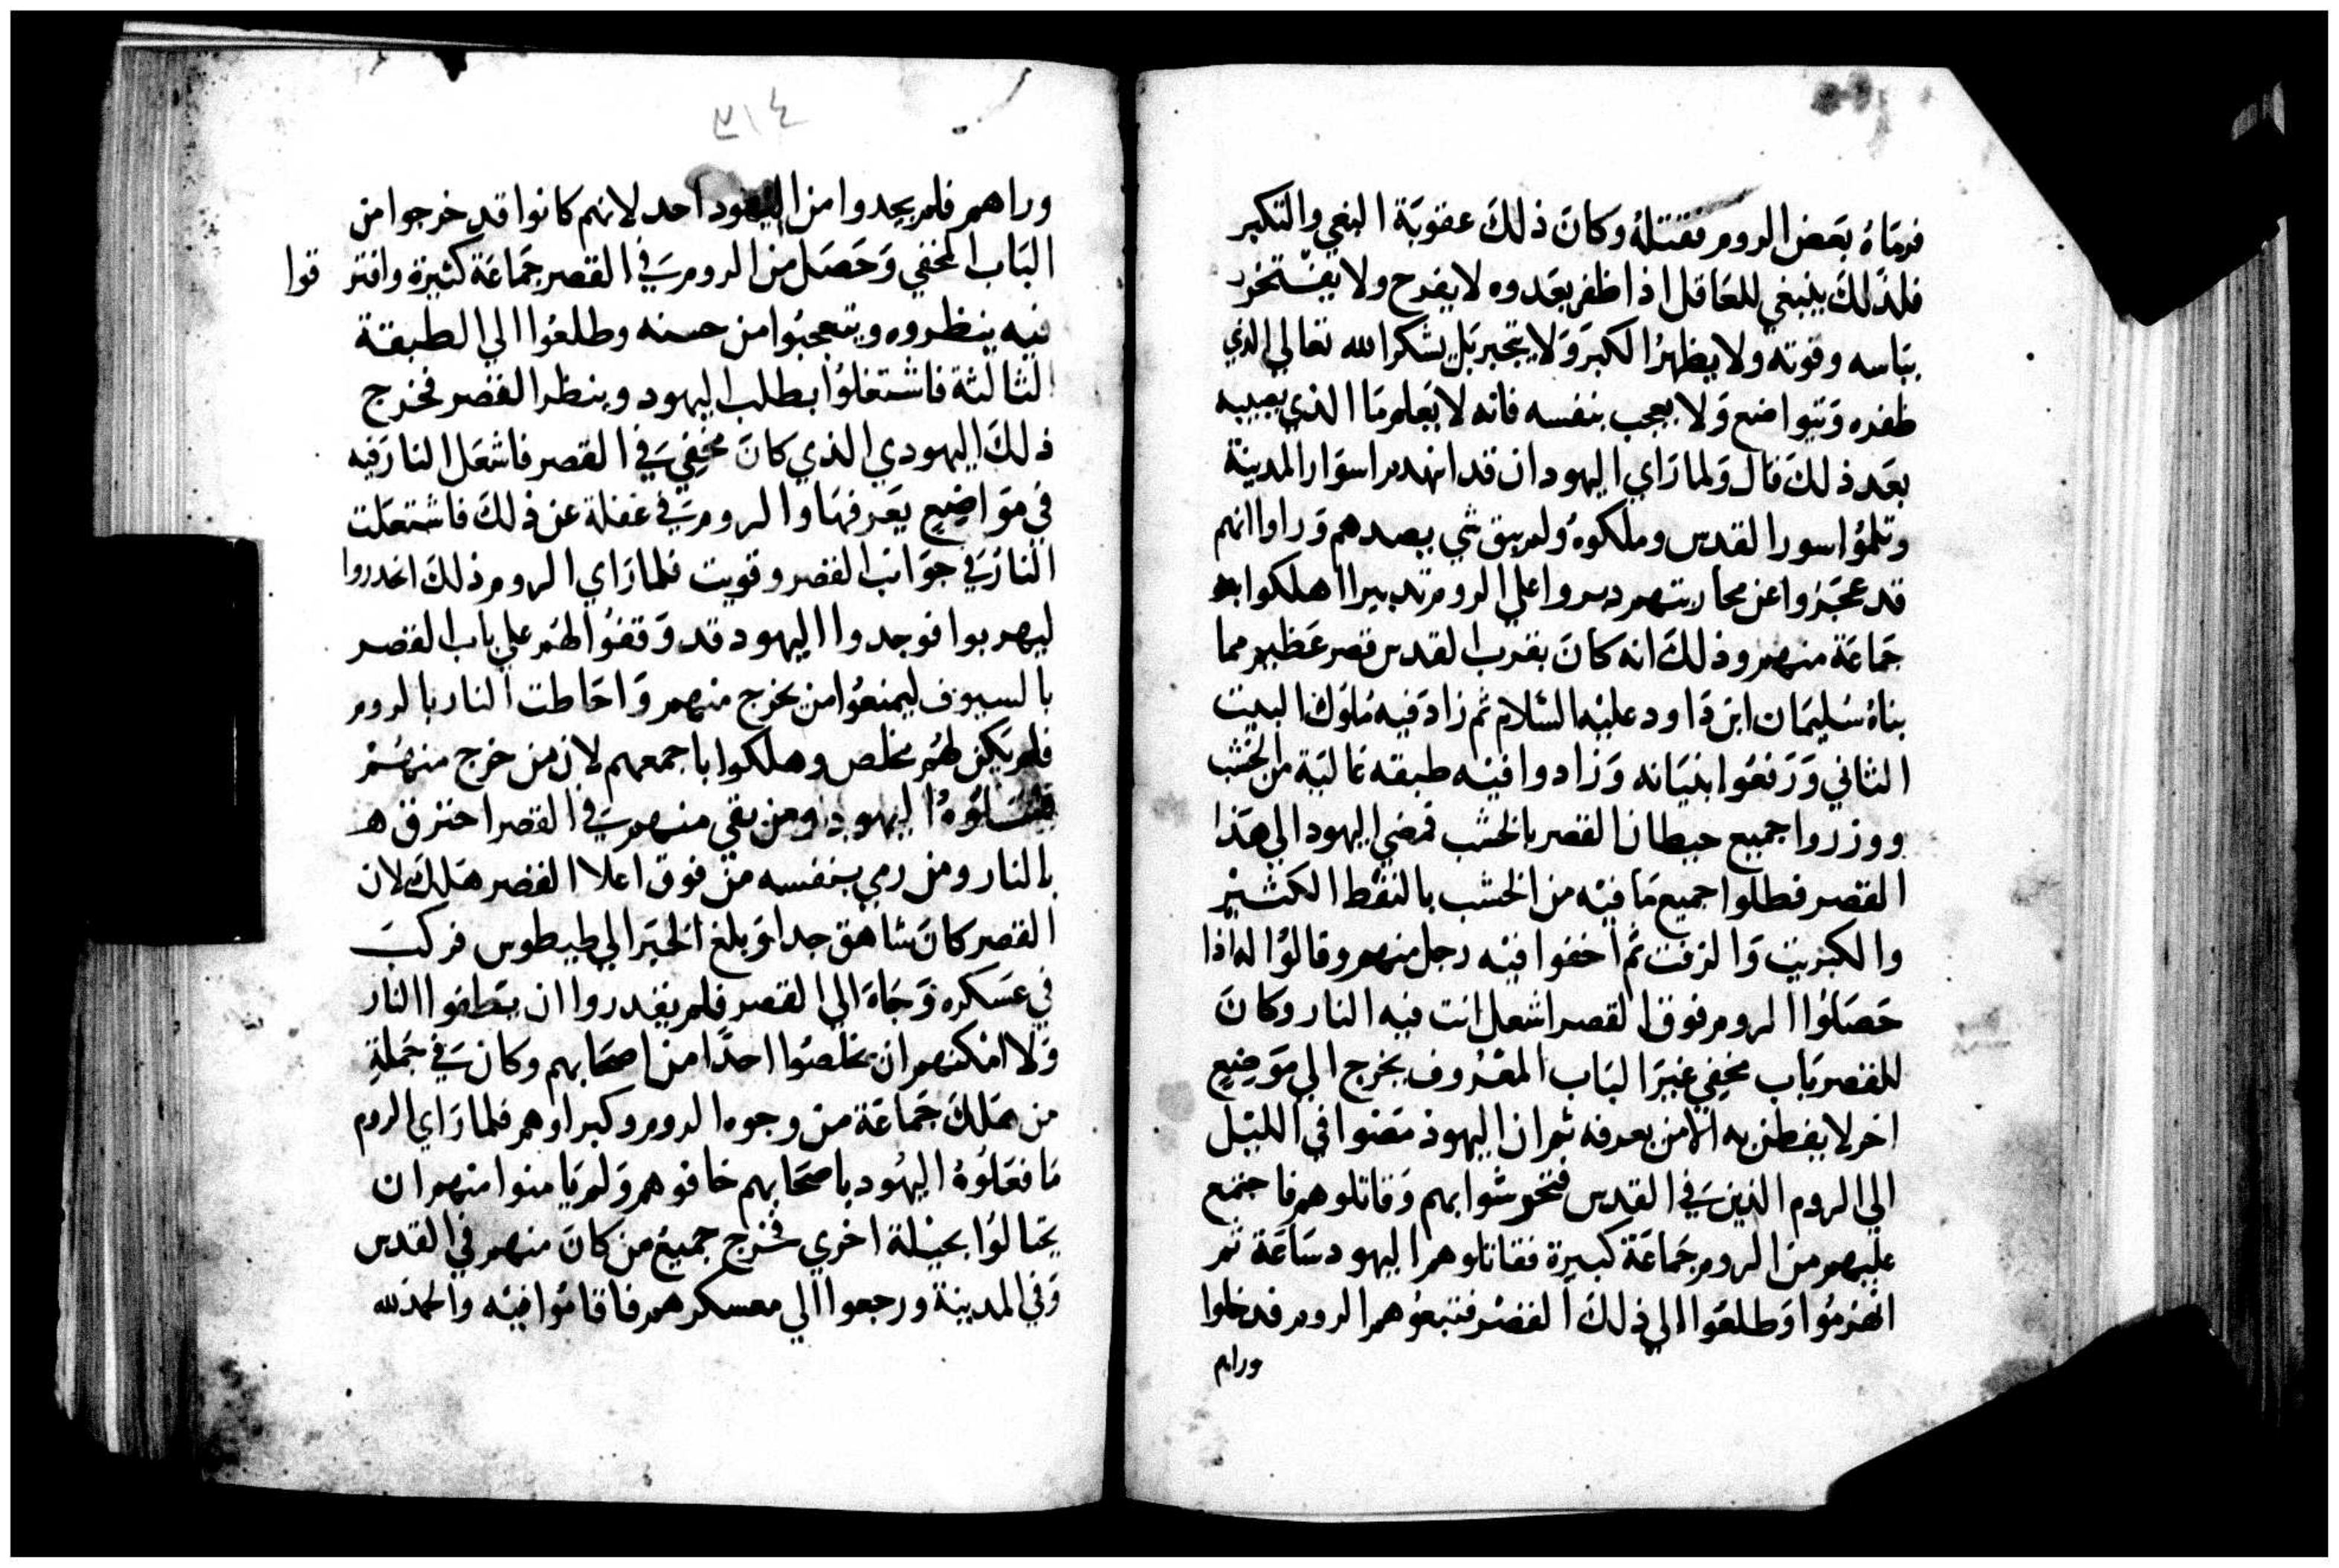 فرماه بعض الروم فقتله وكان ذلك عقوبة البغي والتكبر
فلذلك ينبغي للعاقل اذا ظفر بعدوه لا يفرح ولا يفتخر
بباسه وقوته ولا يظهر الكبر ولا يتجبر بل يشكر الله تعالي الذي
ظفره ويتواضع ولا يعجب بنفسه فانه لا يعلم ما الذي يصيبه
بعد ذلك قال ولما راي اليهود ان قد انهدم اسوار المدينة
وتلموا سور القدس وملكوه ولم يبق شي يصدهم وراوا انهم
قد عجزوا عن محاربتهم دبروا علي الروم تدبيرا اهلكوا به
جماعة منهم وذلك انه كان بقرب القدس قصر عظيم مما
بناه سليمان ابن داود عليه السلام ثم زاد فيه ملوك البيت
الثاني ورفعوا بنيانه وزادوا فيه طبقه عالية من الخشب
ووزروا جميع حيطان القصر بالخشب فمضي اليهود الي هذا
القصر فطلوا جميع ما فيه من الخشب بالنفط الكثير
والكبريت والزفت ثم اخفوا فيه رجل منهم وقالوا له اذا
حصلوا الروم فوق القصر اشعل انت فيه النار وكان
للقصر باب مخفي غير الباب المعروف يخرج الي موضع
اخر لا يفطن به الا من يعرفه ثم ان اليهود مضوا في الليل
الي الروم الذين في القدس فتحرشوا بهم وقاتلوهم فاجتمع
عليهم من الروم جماعة كبيرة فقاتلوهم اليهود ساعة ثم
انهزموا وطلعوا الي ذلك القصر فتبعوهم الروم فدخلوا
وراهم
٣١٤
وراهم فلم يجدوا من اليهود احد لانهم كانوا قد خرجوا من
الباب المخفي وحصل من الروم في القصر جماعة كثيرة وافتر قوا
فيه ينظروه ويتعجبوا من حسنه وطلعوا الي الطبقة
الثالثة فاشتغلوا بطلب اليهود وينظر القصر فخرج
ذلك اليهودي الذي كان مخفي في القصر فاشعل النار فيه
في مواضيع يعرفها والروم في غفلة عن ذلك فاشتعلت
النار في جوانب القصر وقويت فلما راي الروم ذلك انحدروا
ليهربوا فوجدوا اليهود قد وقفوا لهم علي باب القصر
بالسيوف ليمنعوا من يخرج منهم واحاطت النار بالروم
فلم يكن لهم مخلص وهلكوا باجمعهم لان من خرج منهم
قتلوه اليهود ومن بقي منهم في القصر احترق هـ
بالنار ومن رمي بنفسه من فوق اعلا القصر هلك لان
القصر كان شاهق جدا وبلغ الخبر الي طيطوس فركب
في عسكره وجاه الي القصر فلم يقدروا ان يطفوا النار
ولا امكنهم ان يخلصوا احدا من اصحابهم وكان في جملة
من هلك جماعة من وجوه الروم وكبراوهم فلما راي الروم
ما فعلوه اليهود باصحابهم خافوهم ولم يامنوا منهم ان
يحتالوا بحيلة اخري فخرج جميع من كان منهم في القدس
وفي المدينة ورجعوا الي معسكرهم فاقاموا فيه والحمد لله